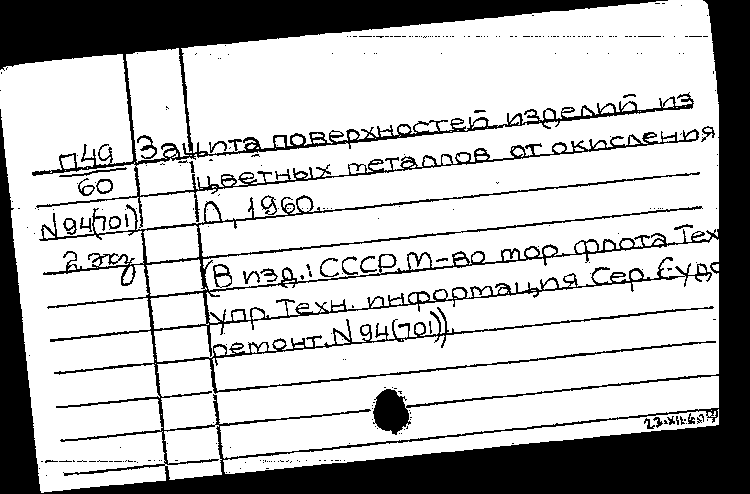 П49
60
N94(701)
2 экз
Защита поверхностей изделий из
цветных металлов от окисления
Л., 1960.
(В изд.: СССР. М-во мор. флота. Тех
упр. Техн. информация Сер. Судо
ремонт. N94(701)).